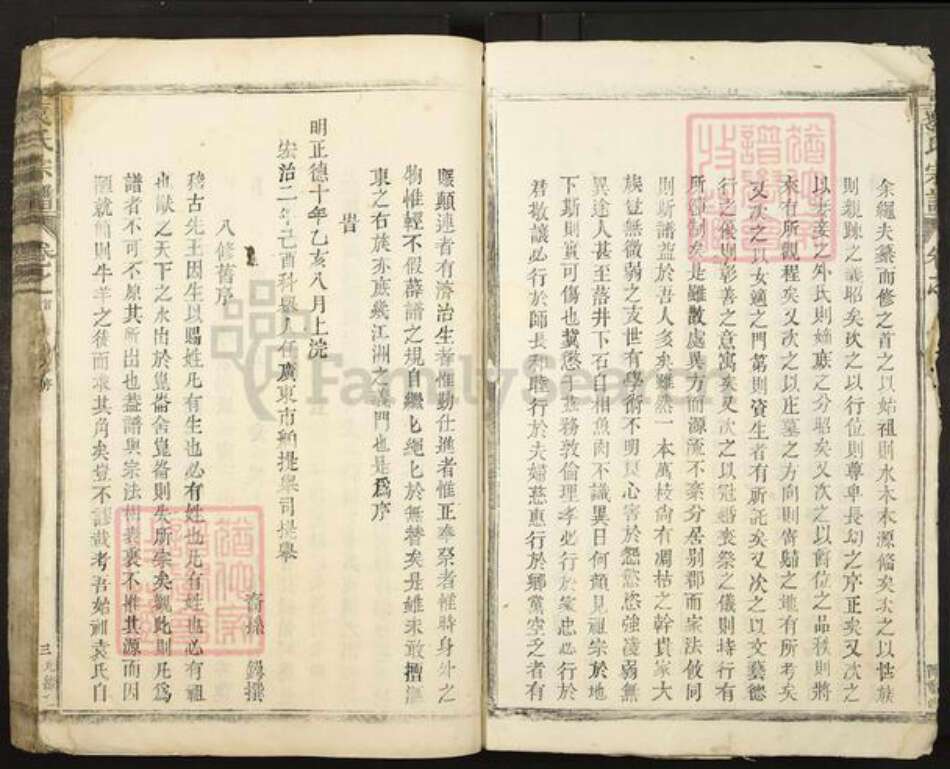 余繩夫纂而修之首之以始祖則水木本源脩矣次之以世族
則親踈之義昭矣次之以行位則尊卑長幼之序正矣又次之
以考妣之外氏則嫡庶之分昭矣又次之以爵位之品秩則將
來有所觀程矣又次之以庄墓之方向則窀歸之地有所考矣
又次之以女適之門第則資生者有所託矣又次之以文藝德
行之優則彰善之意寓矣又次之以冠婚喪祭之儀則持行有
所節制矣是雖散處異方而源流不紊分居别郡而家法攸同
則斯譜益於吾人多矣雖然一本萬枝尙有凋枯之幹貴家大
族豈無微弱之支世有學術不明良心害於怨慾慾強淩弱無
異途人甚至落井下石自相魚肉不識異日何顏見祖宗於地
下斯則寔可傷也冀愆于燕務敦倫理孝必行於家忠必行於
君敬讓必行於師長和睦行於夫婦慈惠行於鄉黨空乏者有
賑顛連者有濟治生者惟勤仕進者惟正奉祭者惟時身外之
物惟輕不假薛譜之規自繼匕繩匕於無替矣是雖未敢擅
東之右族亦庶幾江湖之義門也是爲序
旹
明正德十年乙亥八月上浣
宏治二年己酉科舉人任廣東市舶提舉司提舉
裔孫 錄撰
八修舊序
稽古先王因生以賜姓凡有生也必有姓也凡有姓也必有祖
也猷之天下之水出於崑崙舍崑崙則失所宗矣觀此則凡爲
譜者不可不原其所出也蓋譜與宗法相表裏不推其源而因
循就簡則牛羊之後而求其角矣豈不謬哉考吾始祖袁氏自
袁氏宗譜
卷之首
三
袁氏宗譜
卷之
FamilySearch